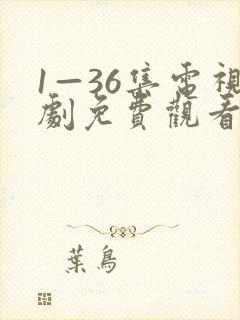 1—36集電視
劇免費觀看
葉鳥